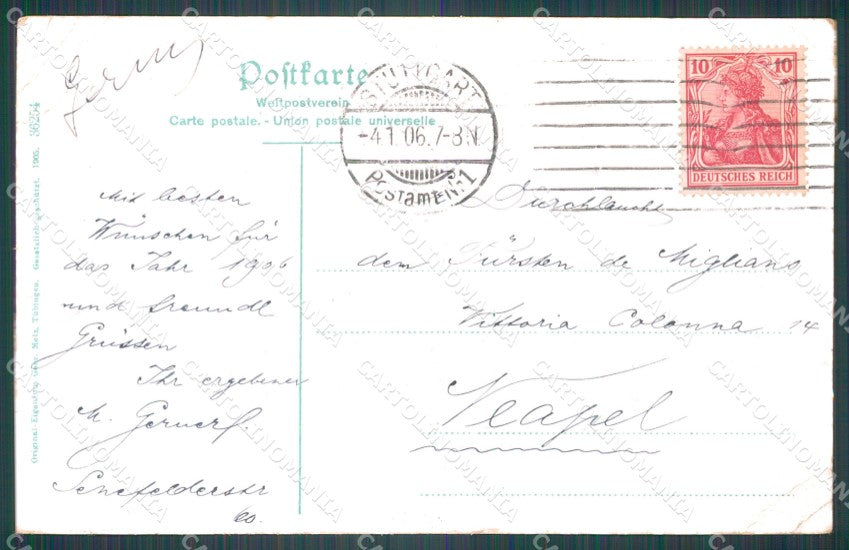 Postkarte
Weltpostverein
Carte postale. - Union postale universelle
STUTTGART
-4.1.06.7-8N.
Postamt № 1
10 10
DEUTSCHES REICH
Mit besten
Wünschen für
das Jahr 1906
und freundl
Grüssen
Ihr ergebener
M.
Senefelderstr
60.
Durchlaucht
dem Fürsten de Migliano
Vittoria Colonna 14
Neapel
Original-Eigentum Gebr. Metz, Tübingen. Gesetzlich geschützt. 1905. 36254
CARTOLINOMANIA